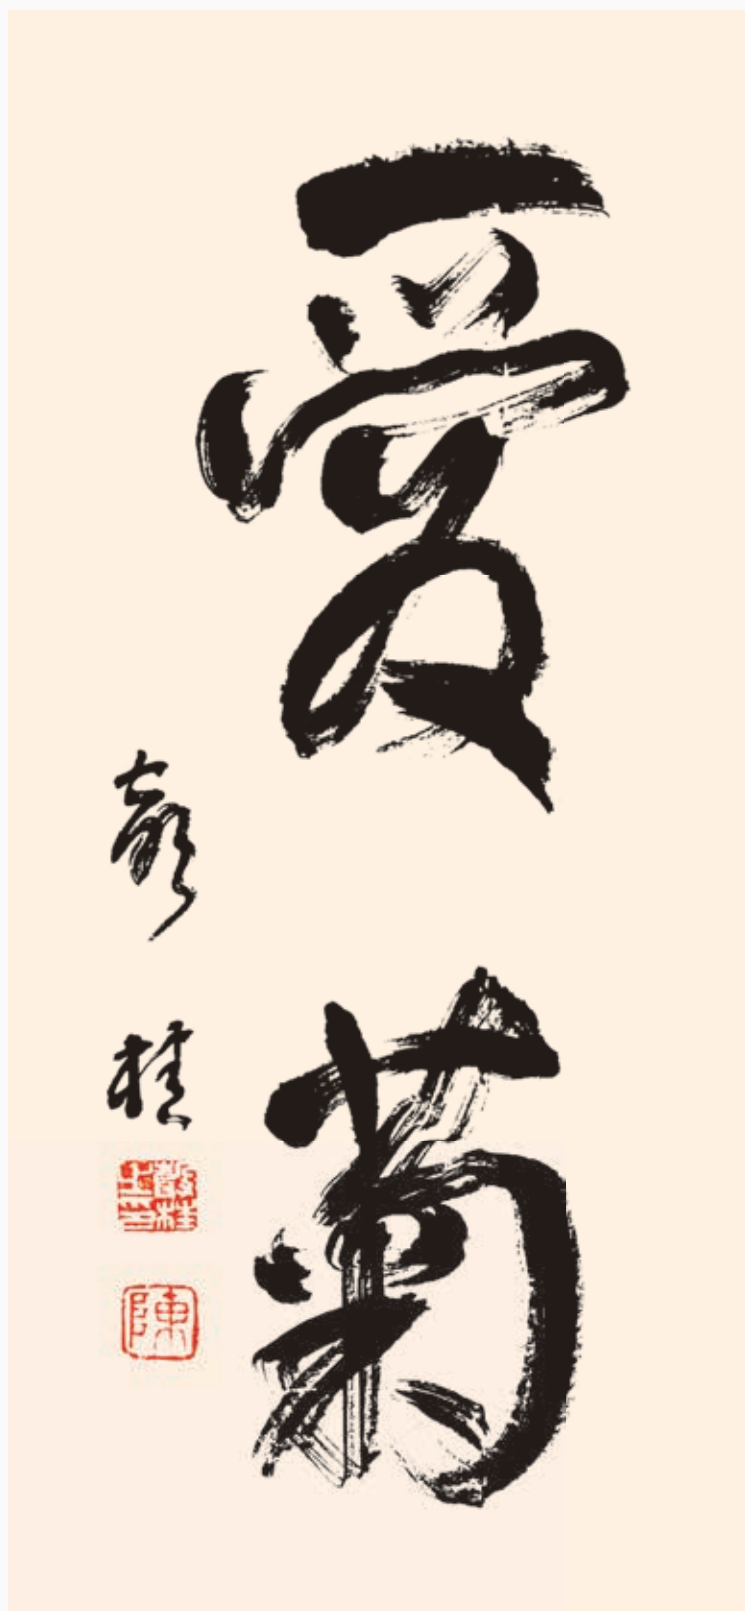 愛菊
桂
陳